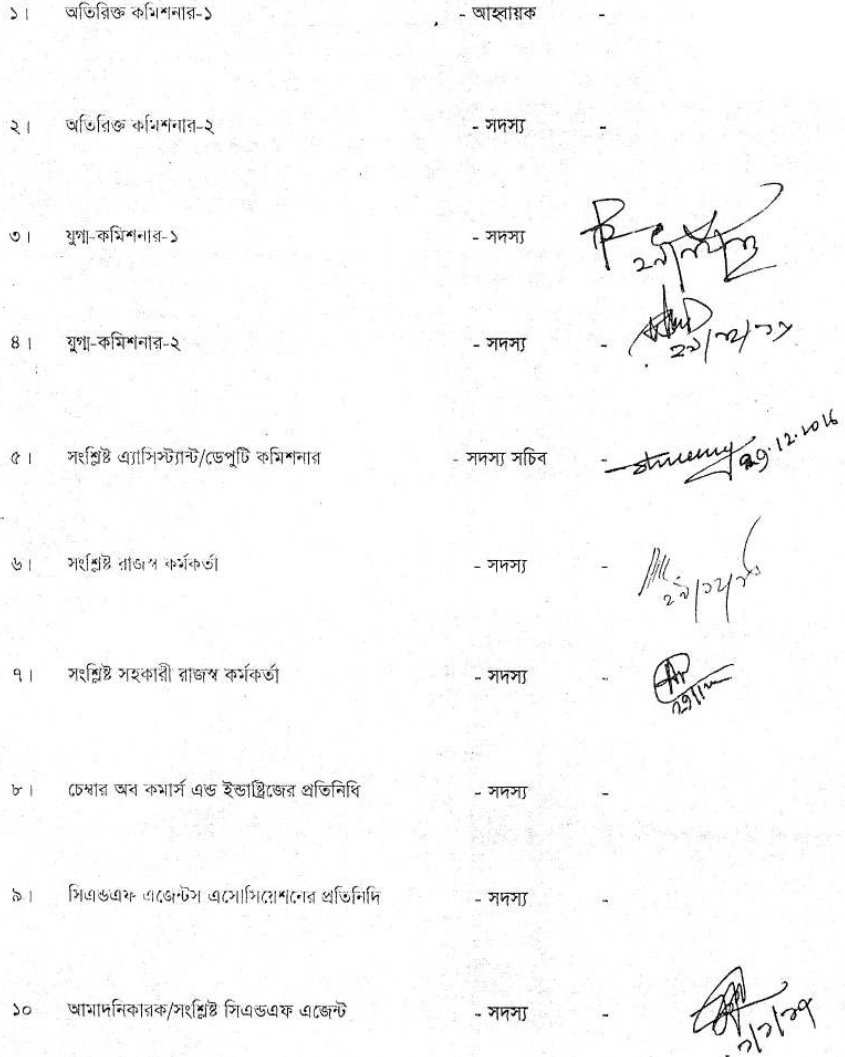 ১। অতিরিক্ত কমিশনার-১ - আহ্বায়ক -
২। অতিরিক্ত কমিশনার-২ - সদস্য -
৩। যুগ্ম-কমিশনার-১ - সদস্য
৪। যুগ্ম-কমিশনার-২ - সদস্য - ২৯/১২/১৬
৫। সংশ্লিষ্ট এ্যাসিস্ট্যান্ট/ডেপুটি কমিশনার - সদস্য সচিব - 29.12.2016
৬। সংশ্লিষ্ট রাজস্ব কর্মকর্তা - সদস্য - ২৯/১২/১৬
৭। সংশ্লিষ্ট সহকারী রাজস্ব কর্মকর্তা - সদস্য -
৮। চেম্বার অব কমার্স এন্ড ইন্ডাষ্ট্রিজের প্রতিনিধি - সদস্য -
৯। সিএন্ডএফ এজেন্টস এসোসিয়েশনের প্রতিনিদি - সদস্য -
১০ আমাদনিকারক/সংশ্লিষ্ট সিএন্ডএফ এজেন্ট - সদস্য ১/১/১৭